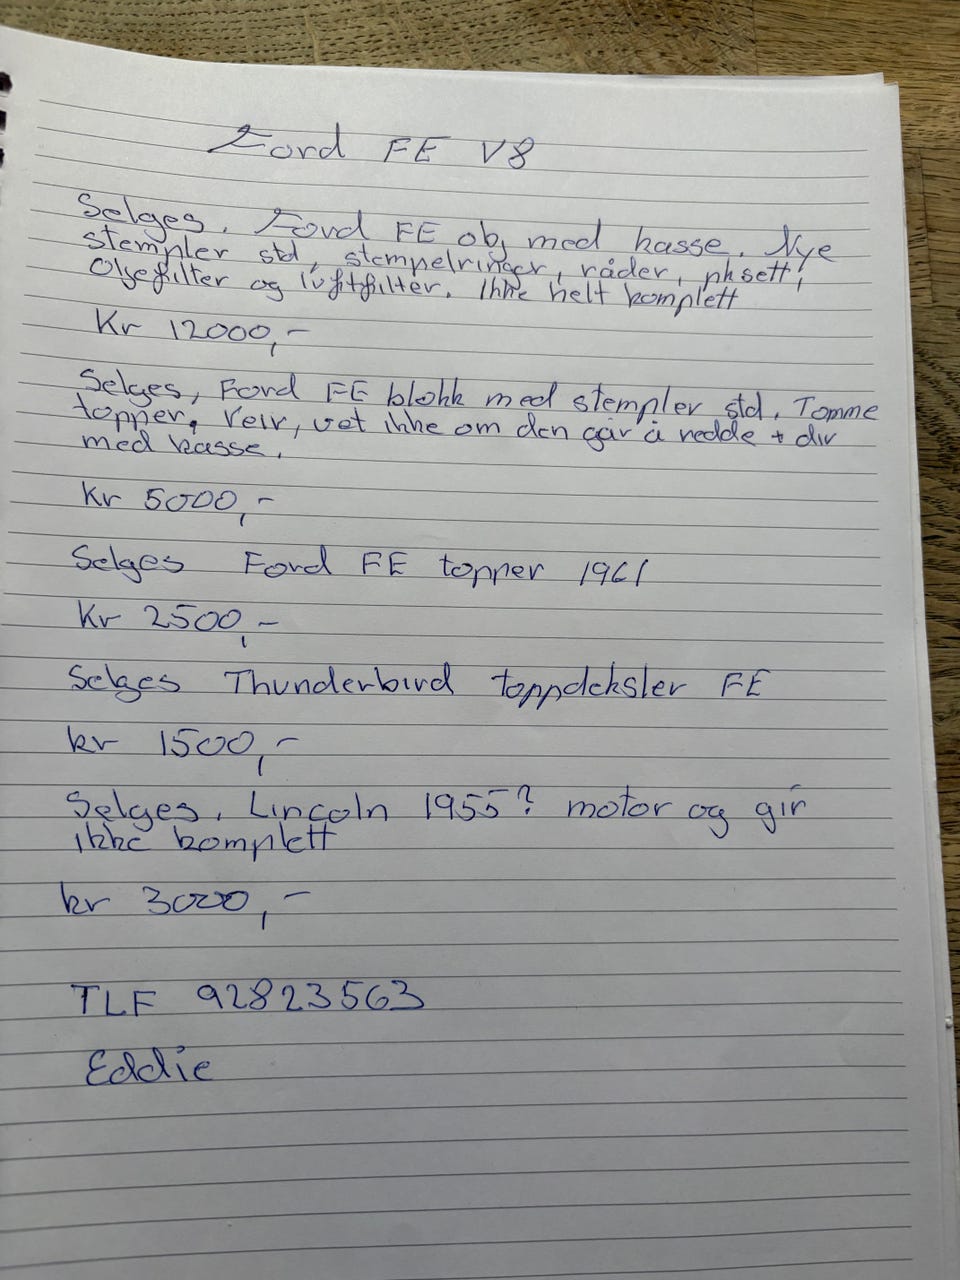 Ford FE V8
Selges, Ford FE obj med kasse. Nye
stempler std, stempelringer, råder, pksett,
Oljefilter og luftfilter. Ikke helt komplett
Kr 12000,-
Selges, Ford FE blokk med stempler std. Tomme
topper, Veiv, vet ikke om den går å redde + div
med kasse.
Kr 5000,-
Selges Ford FE topper 1961
Kr 2500,-
Selges Thunderbird toppdeksler FE
kr 1500,-
Selges, Lincoln 1955? motor og gir
ikke komplett
kr 3000,-
TLF 92823563
Eddie